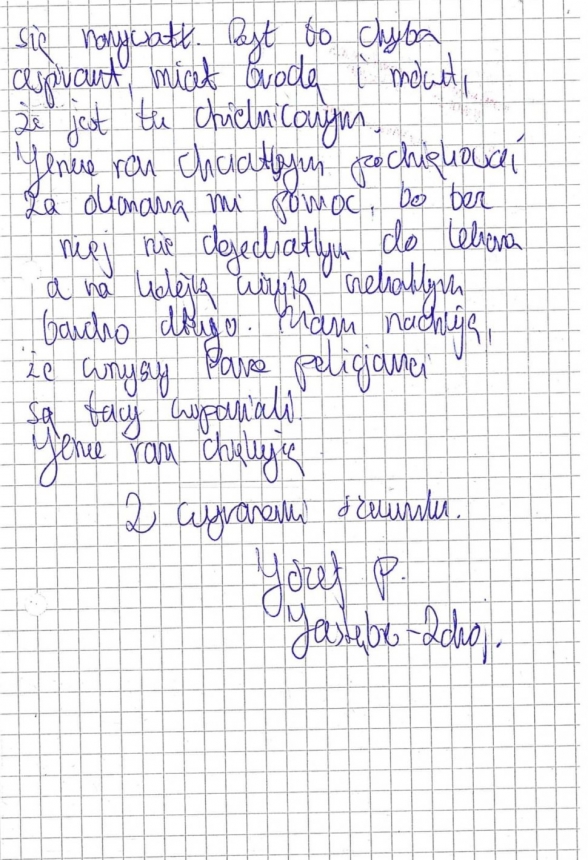 się nazywał. Był to chyba
aspirant, miał brodę i mówił,
że jest tu dzielnicowym.
Jeszcze raz chciałbym podziękować
za okazaną mi pomoc, bo bez
niej nie dojechałbym do lekarza
a na kolejną wizytę czekałbym
bardzo długo. Mam nadzieję,
że wszyscy Pana policjanci
są tacy wspaniali.
Jeszcze raz dziękuję
Z wyrazami szacunku.
Józef P.
Jastrzębie-Zdrój.